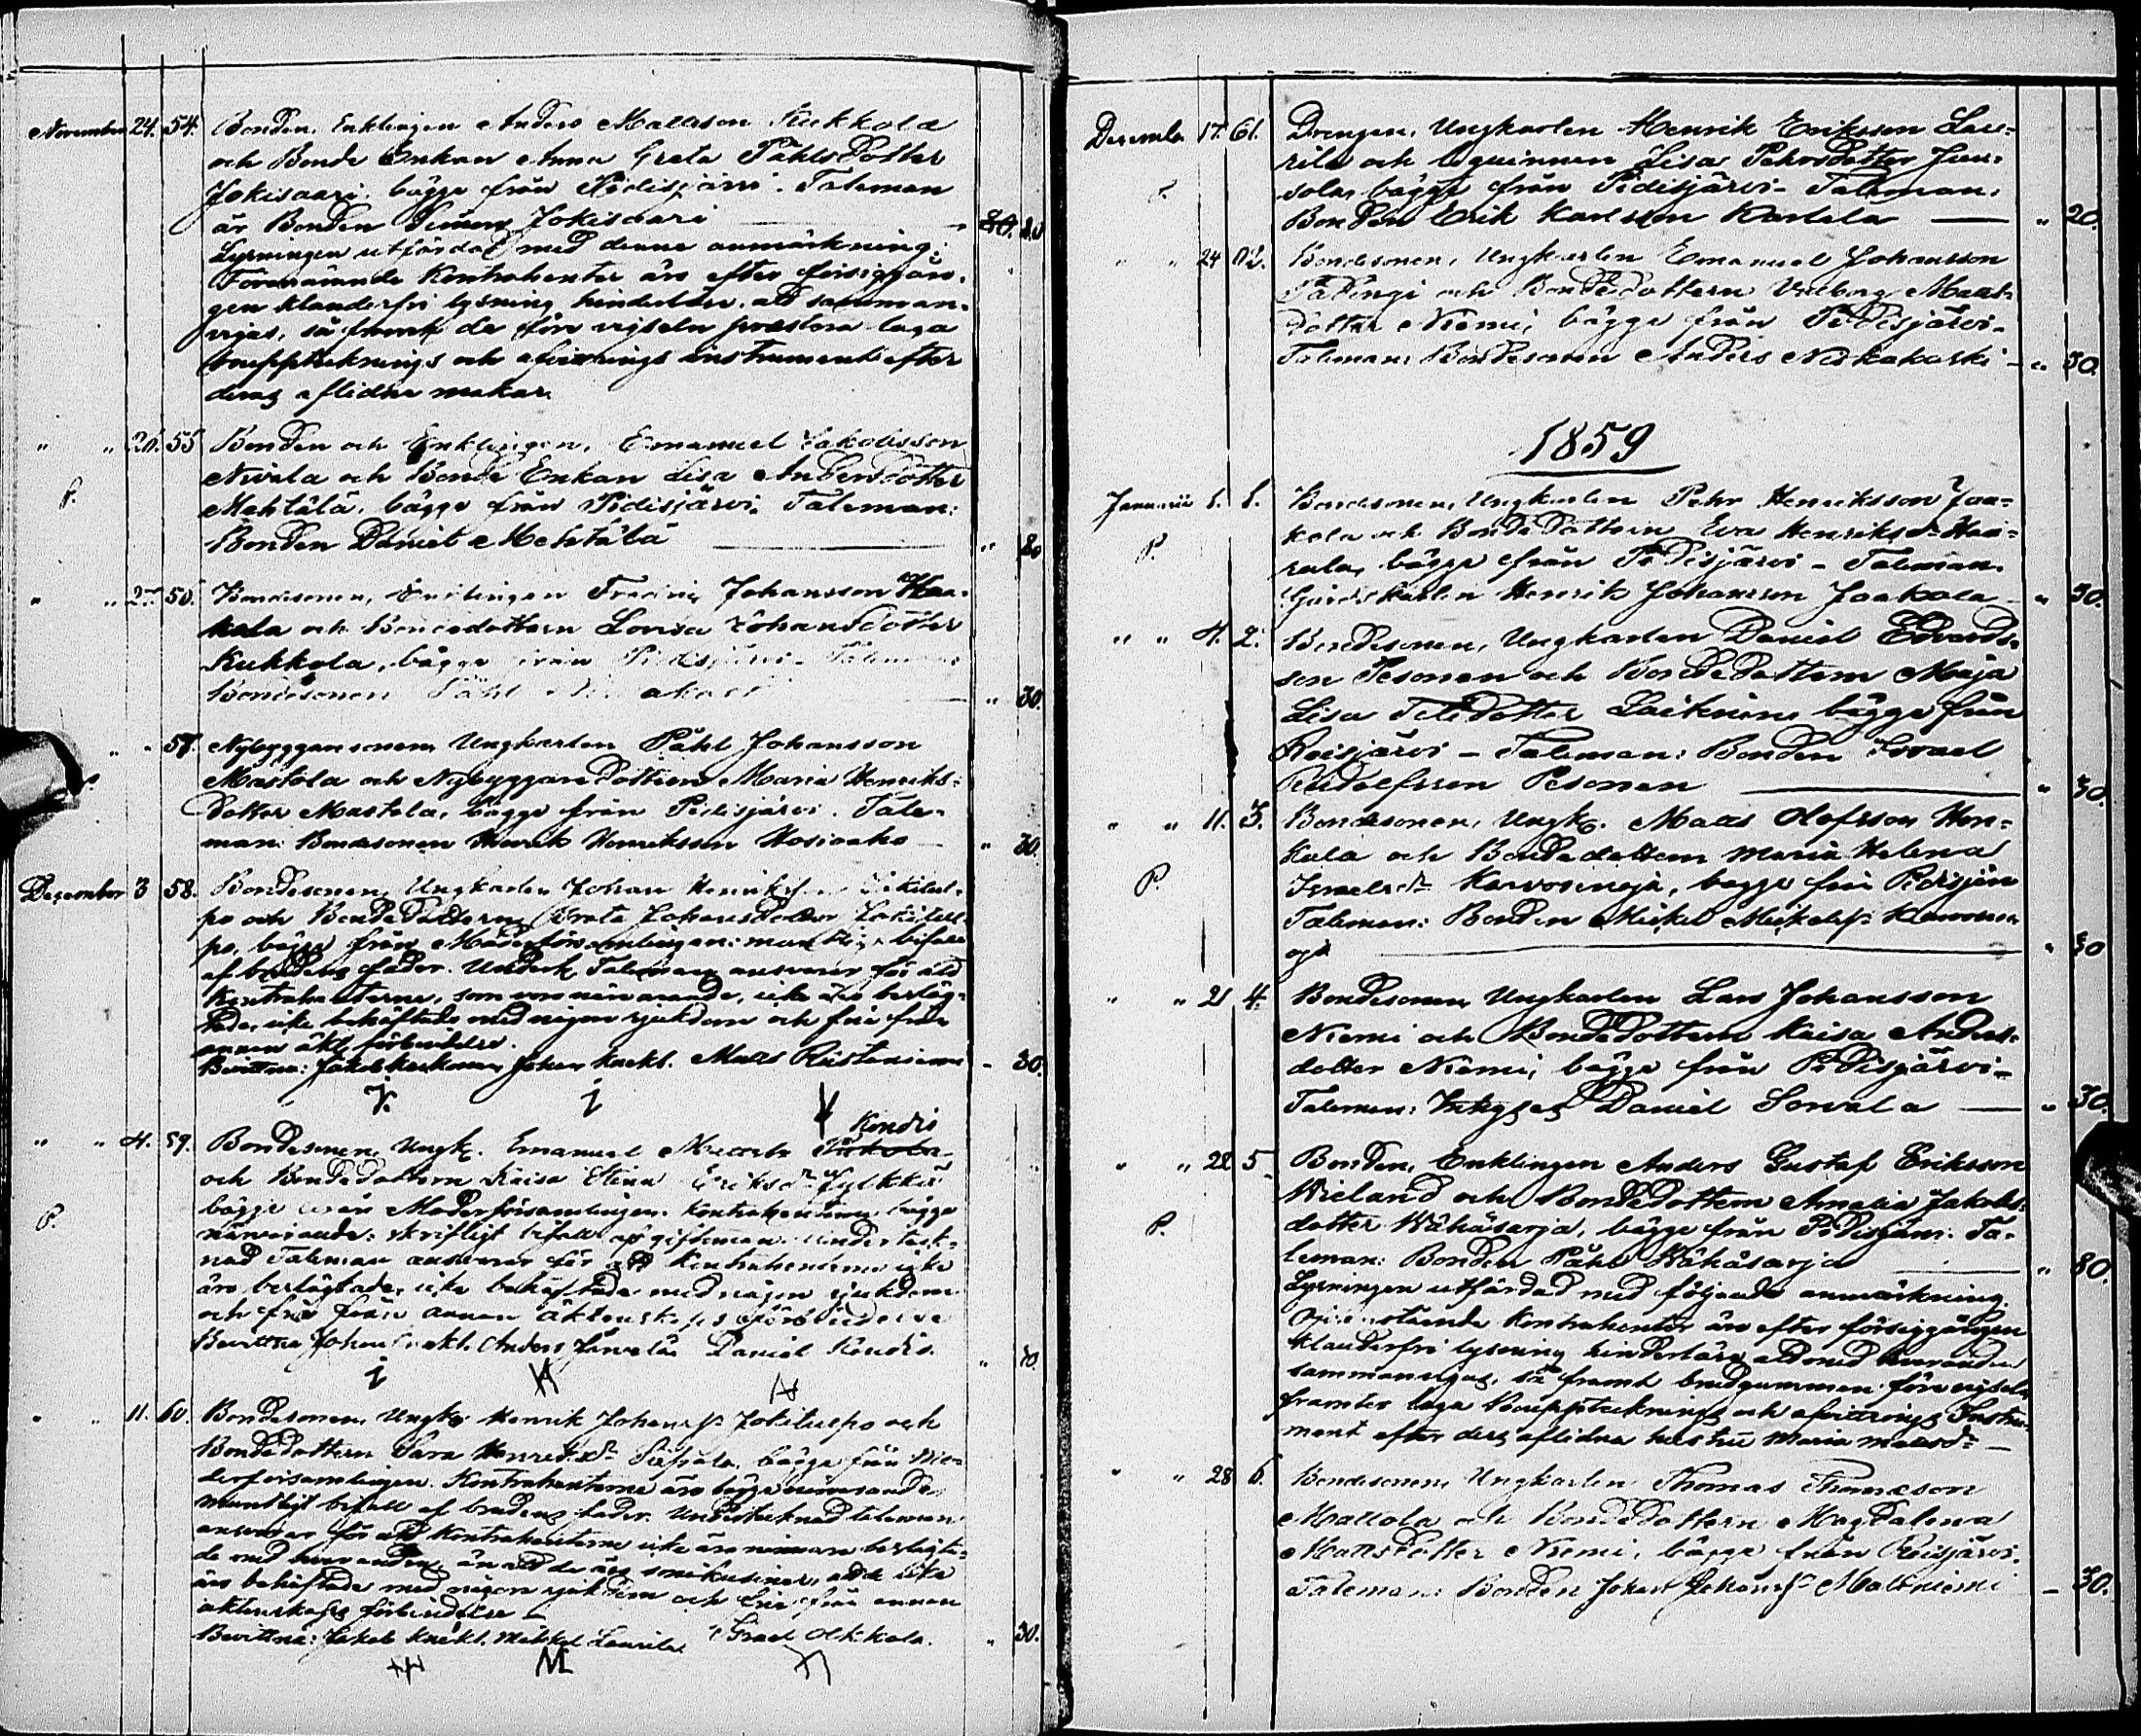 November 24. 54. Bonden, Enklingen Anders Mattsson Kukkola
och Bonde Enkan Anna Greta Påhlsdotter
Jokisaari, bägge från Pidisjärvi. Taleman
är Bonden Simon Jokisaari — " 80.
Lysningen utfärdad med denne anmärkning:
Förenämnde Kontrahenter äro efter försiggån-
gen klanderfri lysning hinderlöse, att samman-
vigas, så framt de före vigseln prestera laga
bouppteknings och afvittrings instrument efter
deras aflidna makar.
" " 26. 55 Bonden och Enklingen, Emanuel Jakobsson
Nivala och Bonde Enkan Lisa Andersdotter
P. Mehtälä, bägge från Pidisjärvi. Taleman:
Bonden Daniel Mehtälä — " 80
" " 27. 56. Bondesonen, Enklingen Johansson
och Bondedottern Lovisa Johansdotter
Kukkola, bägge från Pidisjärvi. Taleman:
Bondesonen Påhl — " 30.
" " 57. Nybyggaresonen, Ungkarlen Påhl Johansson
Mastola och Nybyggaredottern Maria Henriks-
dotter Mastola, bägge från Pidisjärvi. Tale-
man: Bondesonen Henrik Henriksson Hosioaho — " 30.
December 3 58. Bondesonen, Ungkarlen Johan Henriksson Jokitul-
po och Bondedottern Greta Johansdotter Jokitul-
po, bägge från Moderförsamlingen: muntligt bifall
af brudens fader. Undert. Taleman ansvarar för att
Kontrahenterne, som voro närvarande, icke äro besläg-
tade, icke behäftade med någon sjukdom och frie från
annan äkt. förbindelse.
Bevittna: Jakob Johan Kackl. Matts Ristiniemi — 30.
" " 4. 59. Bondesonen, Ungk. Emanuel Mattss. Kondis
och Bondedottern Kaisa Stina Eriksdr Jylkkä
bägge från Moderförsamlingen. Kontrahenterne bägge
P. närvarande: skriftligt bifall af giftoman. Underteck-
nad Taleman ansvarar för att Kontrahenterne icke
äro beslägtade, icke behäftade med någon sjukdom
och frie från annan äktenskaps förbindelse
Bevittna Johan Anders Järvelä Daniel Kondis. " 30.
" " 11. 60. Bondesonen, Ungk. Henrik Johanss. Jokitulpo och
Bondedottern Sara Henriksdr bägge från Mo-
derförsamlingen. Kontrahenterne äro bägge närvarande
muntligt bifall af brudens fader. Undertecknad taleman
ansvarar för att Kontrahenterne icke äro närmare beslägta-
de med hvarandra, än att de äro småkusiner, att de icke
äro behäftade med någon sjukdom och frie från annan
äktenskaps förbindelse —
Bevittna: Jakob Knekt. Mikkel Laurila Israel Olkkola. " 30.
December 17. 61. Drengen, Ungkarlen Henrik Eriksson Lau-
rila och qvinnan Lisa Pehrsdotter Jun-
sola, bägge från Pidisjärvi - Taleman:
Bonden Erik Karlsson Karlela — " 20.
" " 24 62. Bondesonen, Ungkarlen Emanuel Johansson
Padingi och Bondedottern Valborg Matts-
dotter Niemi, bägge från Pidisjärvi -
Taleman: Bondesonen Anders Niskakoski — " 30.
1859
Januarii 1. 1. Bondesonen, Ungkarlen Pehr Henriksson Jaa-
kola och Bondedottern Eva Henriksdr Haa-
P. rala, bägge från Pidisjärvi - Taleman:
Gårdskarlen Henrik Johansson Jaakola — " 30.
" " 4. 2. Bondesonen, Ungkarlen Daniel Edvards-
son Pesonen och Bondedottern Maja
Lisa Bägge från
Reisjärvi - Taleman: Bonden Israel
Rudolfsson Pesonen — " 30.
" " 11. 3. Bondesonen, Ungk. Matts Olofsson Hon-
kala och Bondedottern Maria Helena
P. Israelsdr Karvosenoja, bägge från Pidisjärvi
Taleman: Bonden Mickel Mickelss. Karvosen
oja — " 30
" " 21 4. Bondesonen, Ungkarlen Lars Johansson
Niemi och Bondedottern Kaisa Anders-
dotter Niemi, bägge från Pidisjärvi -
Taleman: Inhyses Daniel Sorvala — " 30.
" " 28 5 Bonden, Enklingen Anders Gustaf Eriksson
Wieland och Bondedottern Amalia Jakobs-
dotter Wähäsarja, bägge från Pidisjärvi. Ta-
P. leman: Bonden Påhl Wähäsarja — " 80.
Lysningen utfärdad med följande anmärkning
Ofvanstående Kontrahenter äro efter försiggången
klanderfri lysning hinderlöse att med hvarandra
sammanvigas, så framt brudgummen före vigseln
framter laga Bouppteknings och afvittrings Instru-
ment efter dess aflidna hustru Maria Mattsdr —
" " 28 6. Bondesonen, Ungkarlen Thomas Thomasson
Mattola och Bondedottern Magdalena
Mattsdotter Niemi, bägge från Reisjärvi.
Taleman: Bonden Johan Johanss. Malkniemi — 30.